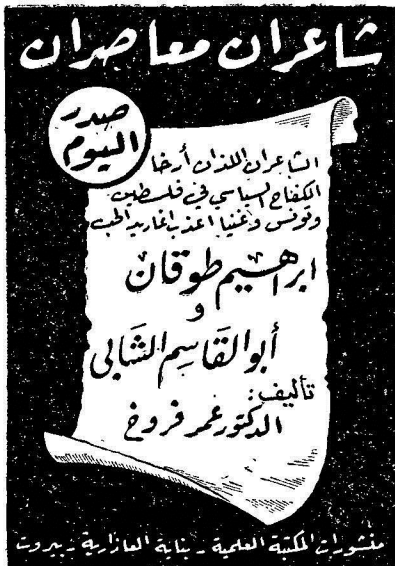 شاعران معاصران
صدر
اليوم
الشاعران اللذان أرخا
الكفاح السياسي في فلسطين
وتونس وغنيا اعذب اغاريد الحب
ابراهيم طوقان
و
أبو القاسم الشابي
تأليف:
الدكتور عمر فروخ
منشورات المكتبة العلمية - بناية العازارية - بيروت